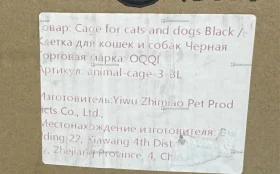 овар: Cage for cats and dogs Black /
летка для кошек и собак Черная
орговая марка: OQQI
ртикул: animal-cage-3-BL
зготовитель: Yiwu Zhimiao Pet Prod
ucts Co., Ltd.,
Местонахождение изготовителя: B
lding 22, Xiawang 4th Dist
y, Zhejiang Province, 4, Ch